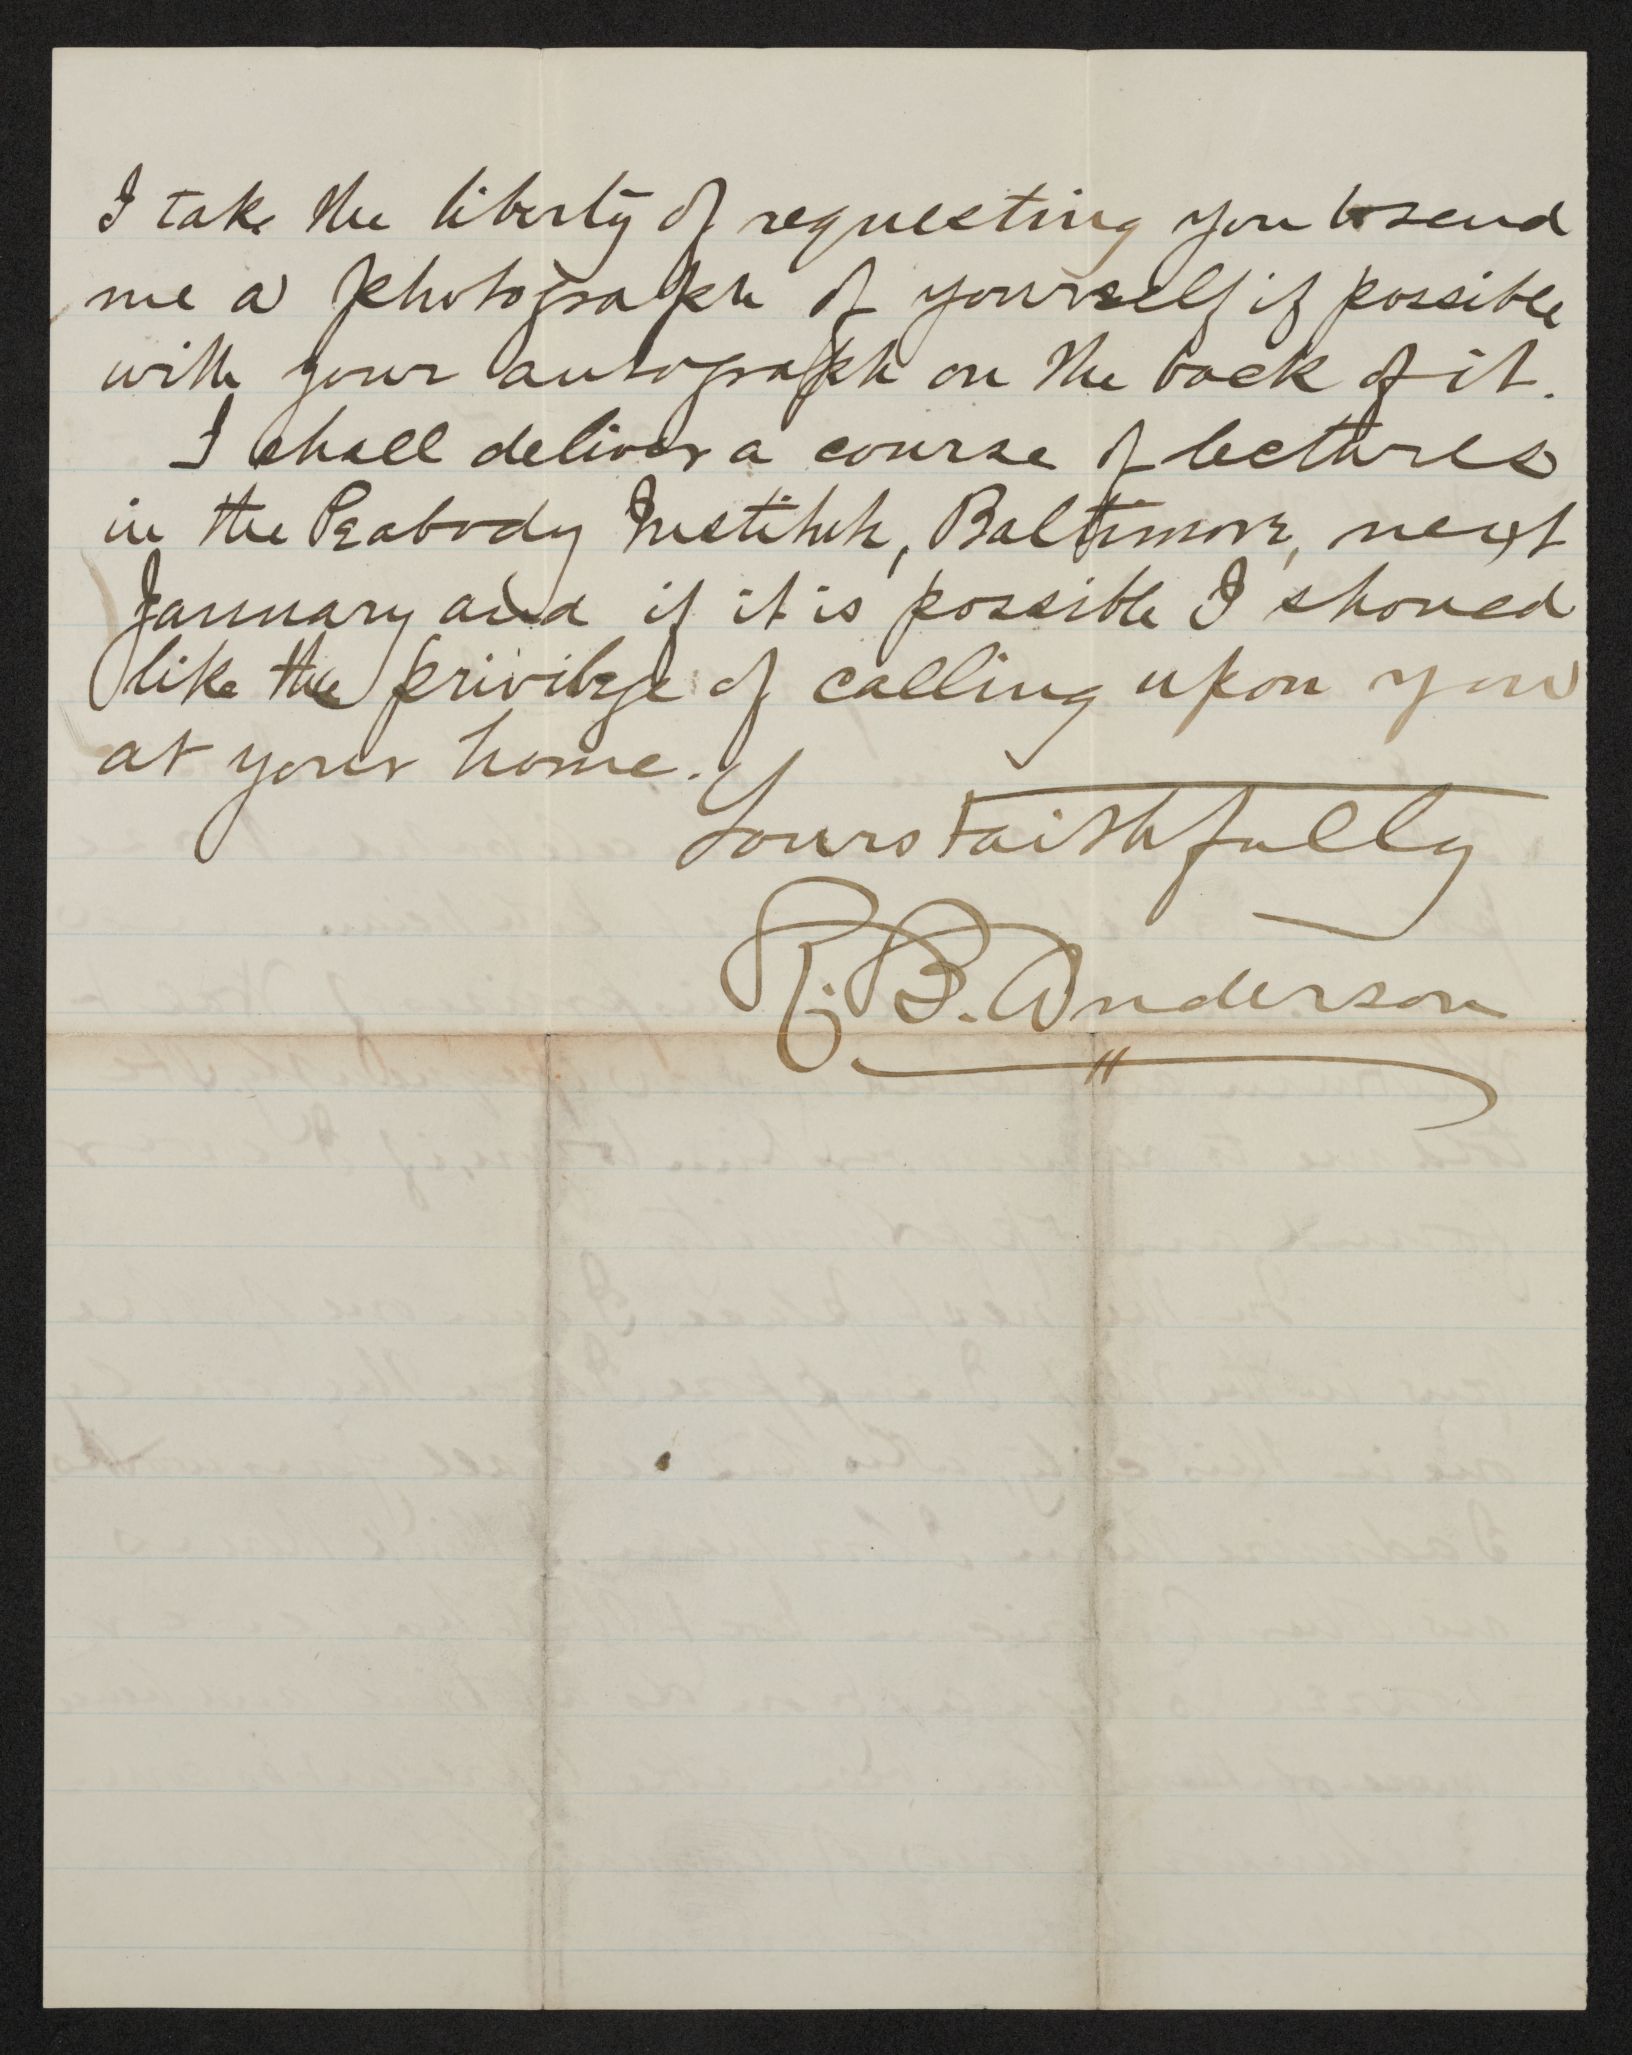 I take the liberty of requesting you to send
me a photograph of yourself if possible
with your autograph on the back of it.
I shall deliver a course of lectures
in the Peabody Institute, Baltimore, next
January and if it is possible I should
like the privilege of calling upon you
at your home.
Yours Faithfully
R. B. Anderson